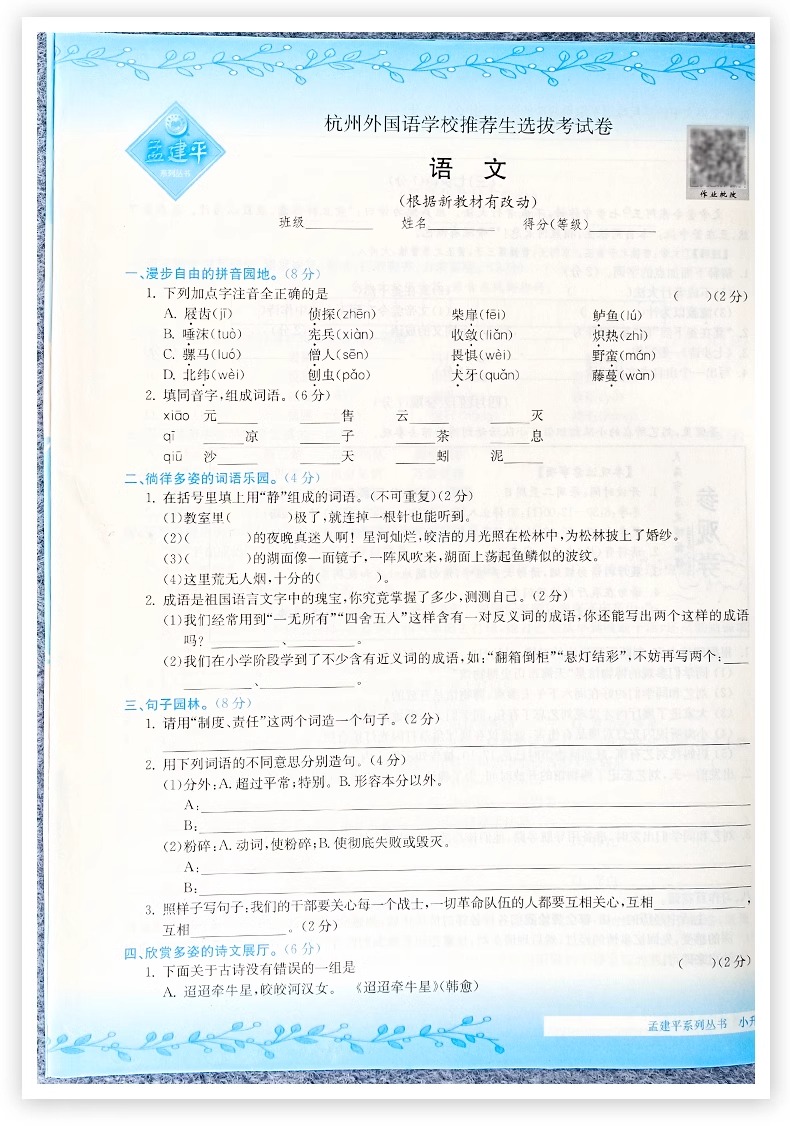 杭州外国语学校推荐生选拔考试卷
孟建平
系列丛书
语 文
作业批改
(根据新教材有改动)
班级________ 姓名________ 得分(等级)________
一、漫步自由的拼音园地。(8分)
1. 下列加点字注音全正确的是 ( )(2分)
A. 屐齿(jī) 侦探(zhēn) 柴扉(fēi) 鲈鱼(lú)
B. 唾沫(tuò) 宪兵(xiàn) 收敛(liǎn) 炽热(zhì)
C. 骡马(luó) 僧人(sēn) 畏惧(wèi) 野蛮(mán)
D. 北纬(wèi) 刨虫(pǎo) 犬牙(quǎn) 藤蔓(wàn)
2. 填同音字,组成词语。(6分)
xiāo 元______ ______售 云______ ______灭
qī ______凉 ______子 ______茶 ______息
qiū 沙______ ______天 ______蚓 泥______
二、徜徉多姿的词语乐园。(4分)
1. 在括号里填上用“静”组成的词语。(不可重复)(2分)
(1)教室里( )极了,就连掉一根针也能听到。
(2)( )的夜晚真迷人啊！星河灿烂,皎洁的月光照在松林中,为松林披上了婚纱。
(3)( )的湖面像一面镜子,一阵风吹来,湖面上荡起鱼鳞似的波纹。
(4)这里荒无人烟,十分的( )。
2. 成语是祖国语言文字中的瑰宝,你究竟掌握了多少,测测自己。(2分)
(1)我们经常用到“一无所有”“四舍五入”这样含有一对反义词的成语,你还能写出两个这样的成语
吗？__________、__________。
(2)我们在小学阶段学到了不少含有近义词的成语,如:“翻箱倒柜”“悬灯结彩”,不妨再写两个:___
__________、__________。
三、句子园林。(8分)
1. 请用“制度、责任”这两个词造一个句子。(2分)
2. 用下列词语的不同意思分别造句。(4分)
(1)分外:A. 超过平常;特别。B. 形容本分以外。
A:
B:
(2)粉碎:A. 动词,使粉碎;B. 使彻底失败或毁灭。
A:
B:
3. 照样子写句子:我们的干部要关心每一个战士,一切革命队伍的人都要互相关心,互相__________,
互相__________。(2分)
四、欣赏多姿的诗文展厅。(6分)
1. 下面关于古诗没有错误的一组是 ( )(2分)
A. 迢迢牵牛星,皎皎河汉女。 《迢迢牵牛星》(韩愈)
孟建平系列丛书 小升